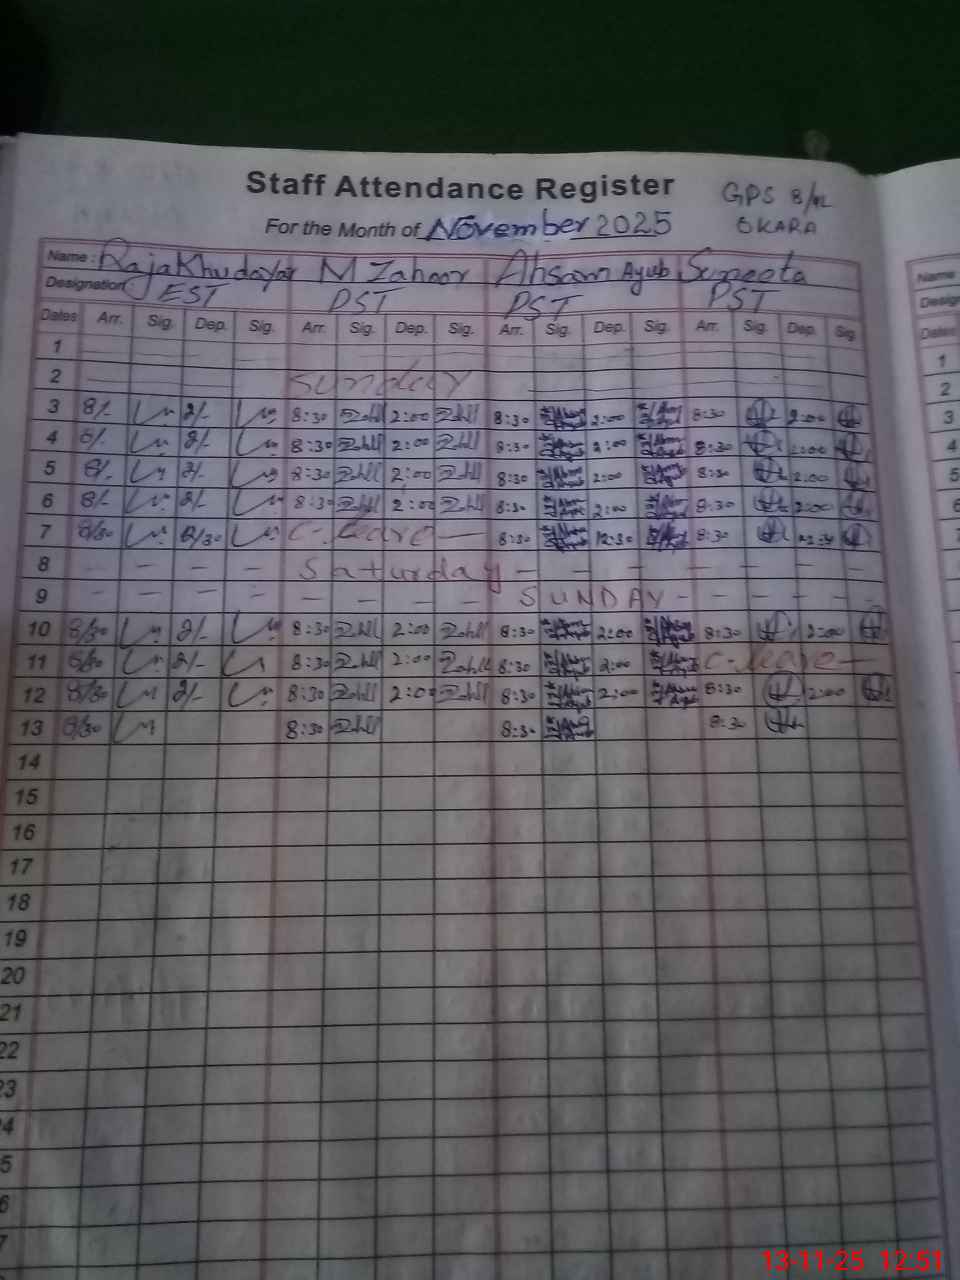 Staff Attendance Register
GPS
For the Month of November 2025 SKARA
Name : Raja Khudayar M Zahoor Ahsaan Ayub Suneeta
Designation EST PST PST PST
Dates Arr. Sig. Dep. Sig. Arr. Sig. Dep. Sig. Arr. Sig. Dep. Sig. Arr. Sig. Dep. Sig.
1
2 Sunday
3 8/- 2/- 8:30 2:00 8:30 2:00 8:30 2:00
4 8/- 2/- 8:30 2:00 8:30 2:00 8:30 2:00
5 8/- 2/- 8:30 2:00 8:30 2:00 8:30 2:00
6 8/- 2/- 8:30 2:00 8:30 2:00 8:30 2:00
7 8/30 12/30 C. Leave 8:30 12:30 8:30 12:30
8 - - - - Saturday - - - - - - - -
9 - - - - - - - - SUNDAY - - - - -
10 8/30 2/- 8:30 2:00 8:30 2:00 8:30 2:00
11 8/30 2/- 8:30 2:00 8:30 2:00 C. Leave
12 8/30 2/- 8:30 2:00 8:30 2:00 8:30 2:00
13 8/30 8:30 8:30 8:30
14
15
16
17
18
19
20
21
22
23
4
5
6
7
Name
Design
Dates
1
2
3
4
5
6
13-11-25 12:51